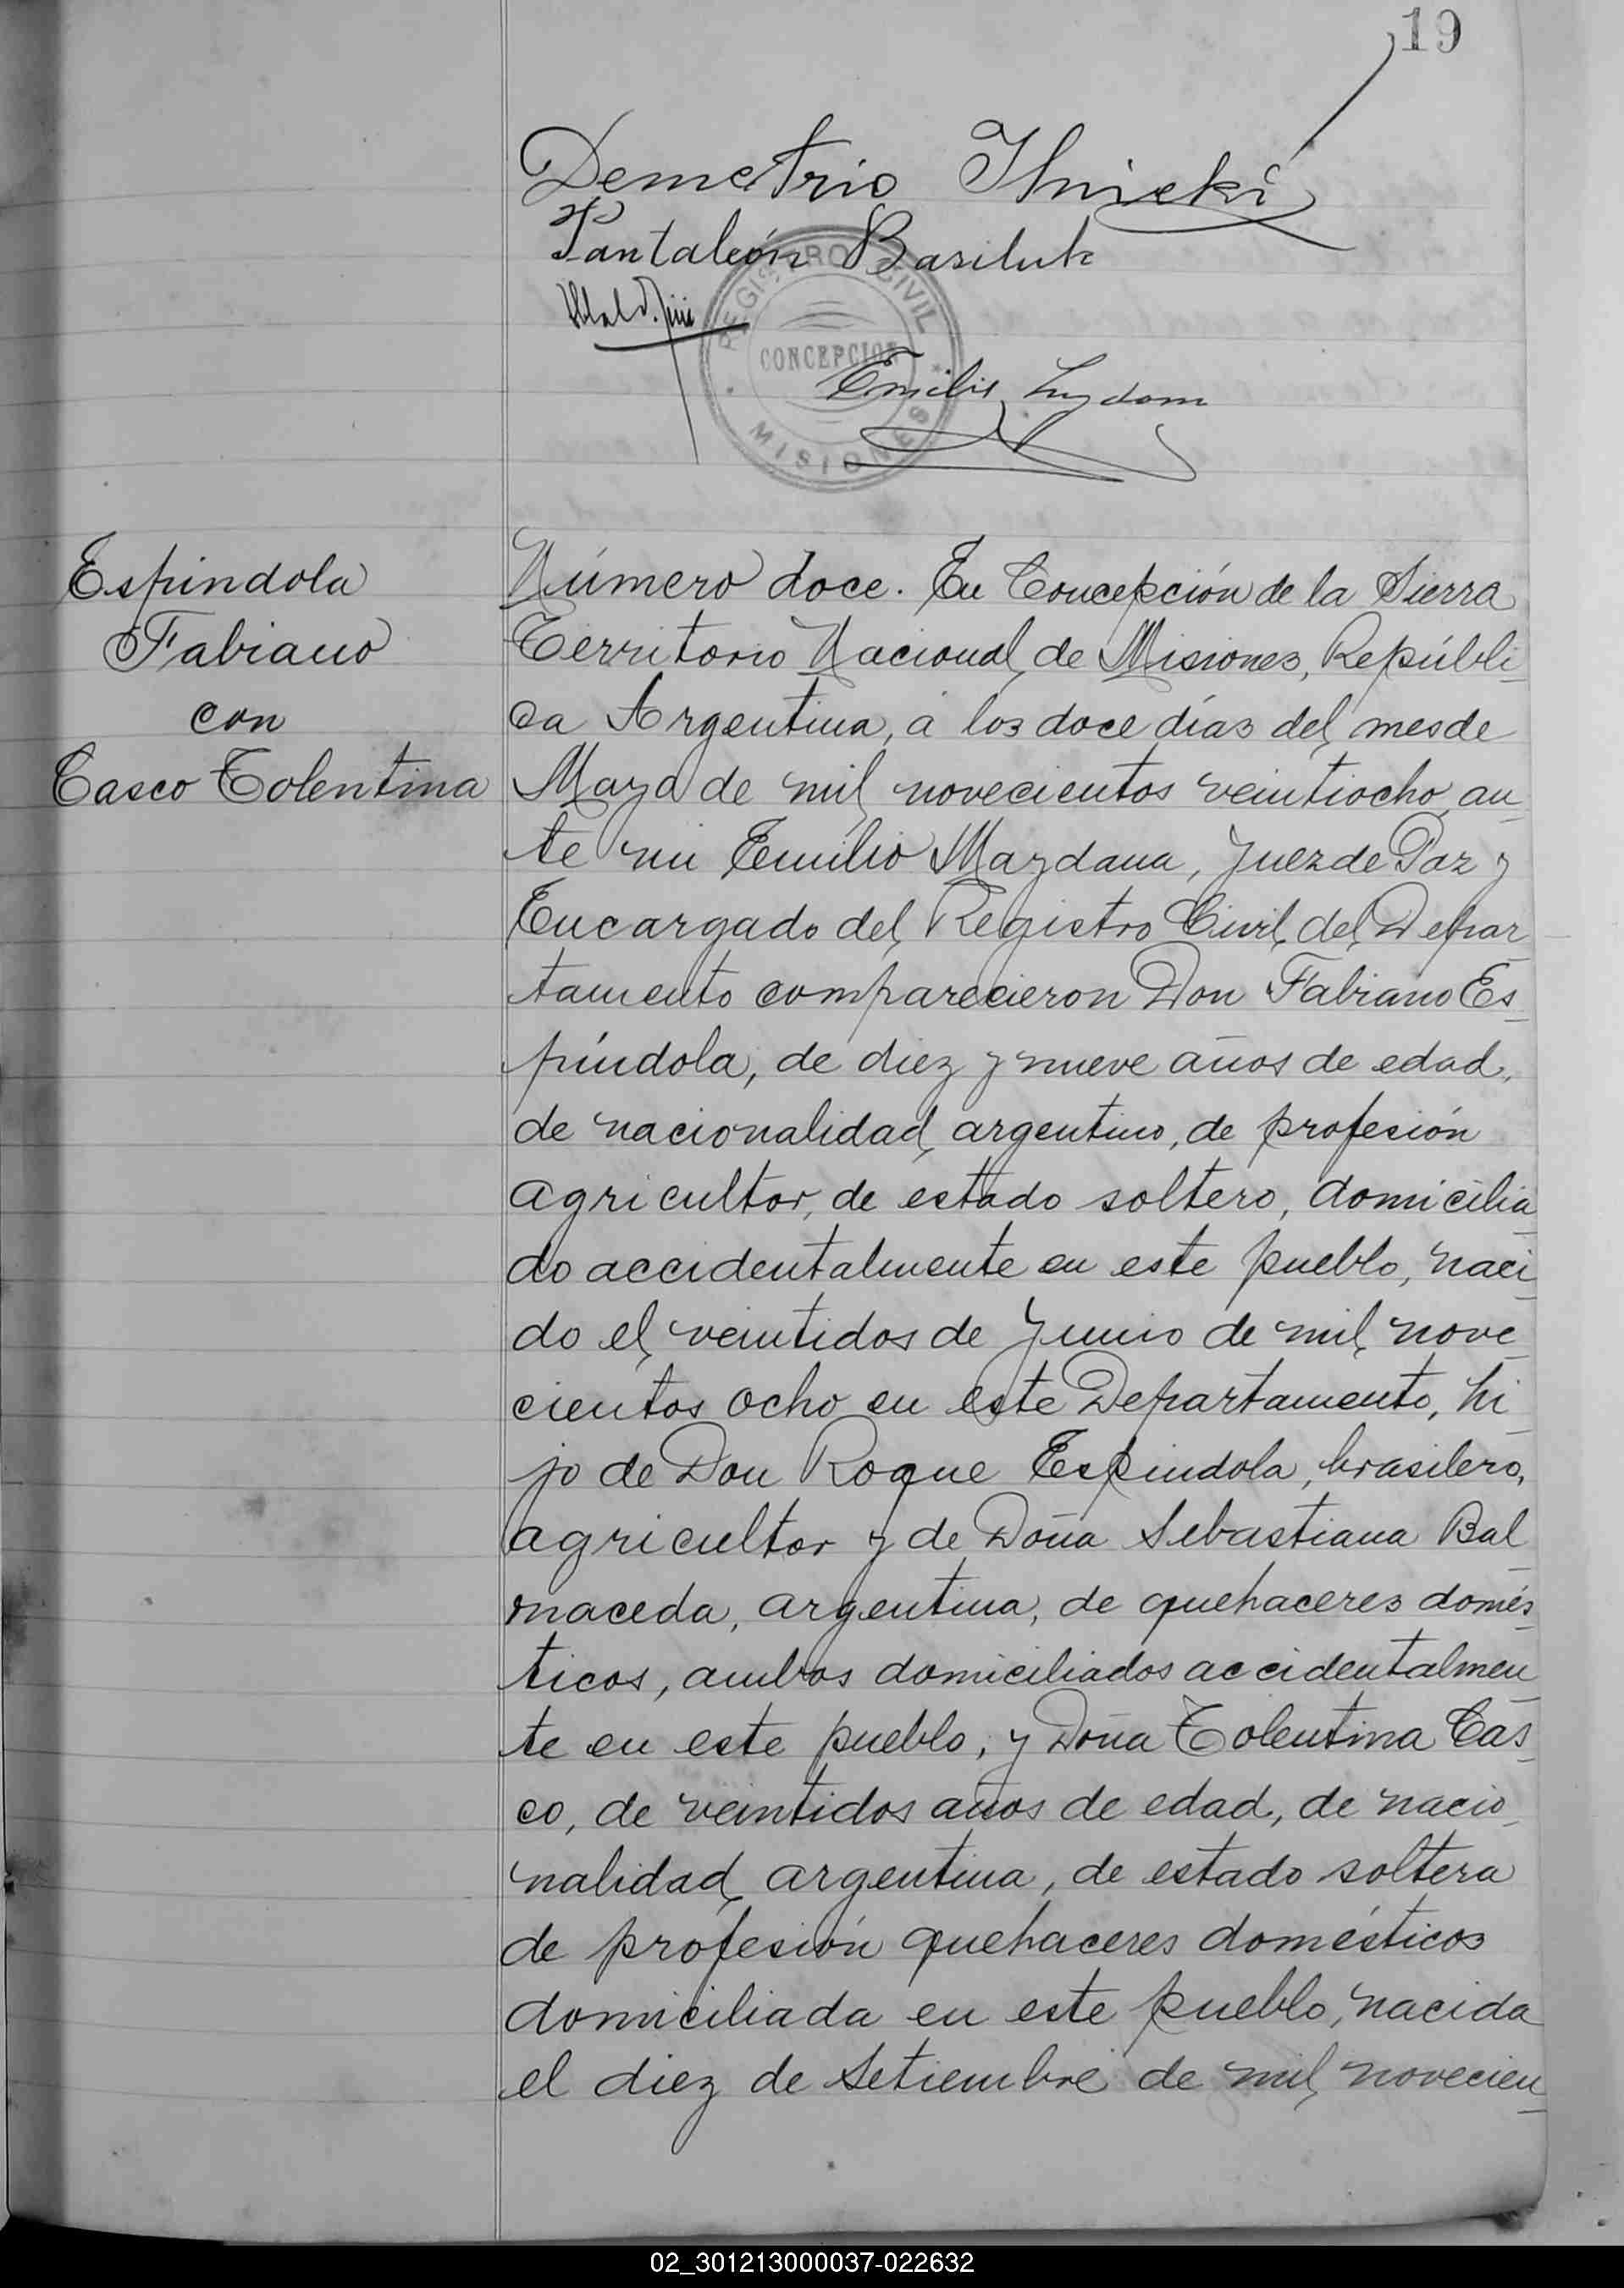 19
Demetrio Ilnicki
Pantaleón Basiluk
REGISTRO CIVIL
CONCEPCION
MISIONES
Emilio
Espindola
Fabiano
con
Casco Tolentina
Número doce. En Concepción de la Sierra
Territorio Nacional de Misiones, Repúbli
ca Argentina, á los doce días del mes de
Mayo de mil novecientos veintiocho, an
te mi Emilio Mazdana, Juez de Paz y
Encargado del Registro Civil del Depar
tamento comparecieron Don Fabiano Es
píndola, de diez y nueve años de edad,
de nacionalidad argentino, de profesión
agricultor, de estado soltero, domicilia
do accidentalmente en este pueblo, naci
do el veintidos de Junio de mil nove
cientos ocho en este Departamento, hi
jo de Don Roque Espindola, brasilero,
agricultor y de Doña Sebastiana Bal
maceda, argentina, de quehaceres domés
ticos, ambos domiciliados accidentalmen
te en este pueblo, y Doña Tolentina Cas
co, de veintidos años de edad, de nacio
nalidad argentina, de estado soltera
de profesión quehaceres domésticos
domiciliada en este pueblo, nacida
el diez de Setiembre de mil novecien
02_301213000037-022632